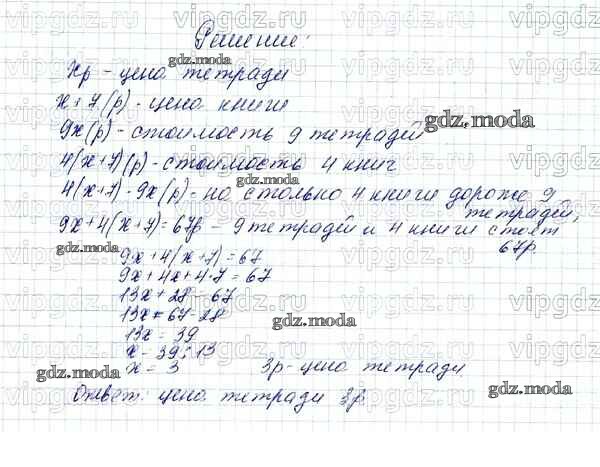 Решение:
Xр - цена тетради
x+7(р) - цена книги
9x(р) - стоимость 9 тетрадей
4(x+7)(р) - стоимость 4 книг
4(x+7)-9x(р) - на столько 4 книги дороже 9 тетрадей,
9x+4(x+7)=67р - 9 тетрадей и 4 книги стоят 67р.
9x+4(x+7)=67
9x+4x+4·7=67
13x+28=67
13x=67-28
13x=39
x=39:13
x=3 3р-цена тетради
Ответ: цена тетради 3р
gdz.moda
gdz.moda
gdz.moda
gdz.moda
gdz.moda
gdz.moda
gdz.moda
vipgdz.ru
vipgdz.ru
vipgdz.ru